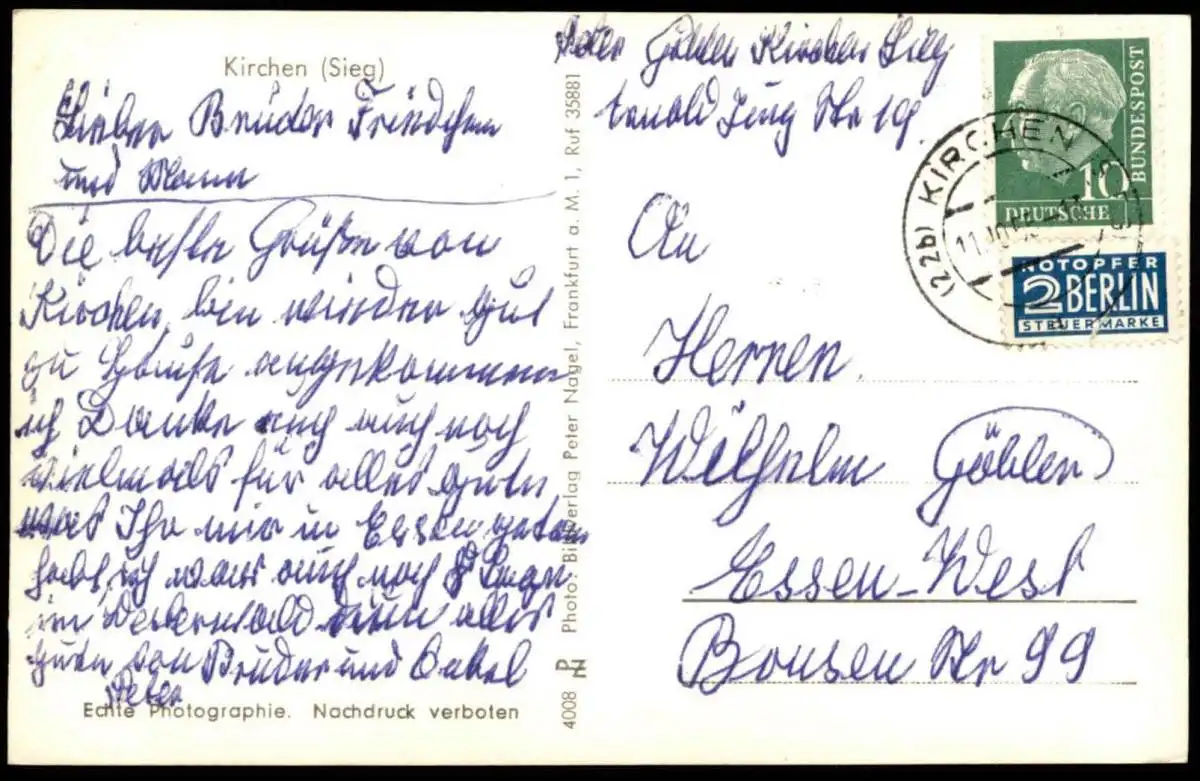 Kirchen (Sieg)
Lieber Bruder Friedchen
und Mann
Die beste Grüße von
Kirchen, bin wieder gut
zu Hause angekommen
ich Danke auch noch
vielmals für alles gute
was Ihr mir in Essen getan
habt, ich war auch noch 8
im Westerwald nun alles
gute von Bruder und Onkel
Peter
Echte Photographie. Nachdruck verboten
4008 Photo: Bildverlag Peter Nagel, Frankfurt a. M. 1, Ruf 35881
Peter Göbler Kirchen Sieg
Jung Str 19.
DEUTSCHE BUNDESPOST
10
(22b) KIRCHEN
NOTOPFER
2 BERLIN
STEUERMARKE
An
Herren
Wilhelm Göbler
Essen-West
Str 99